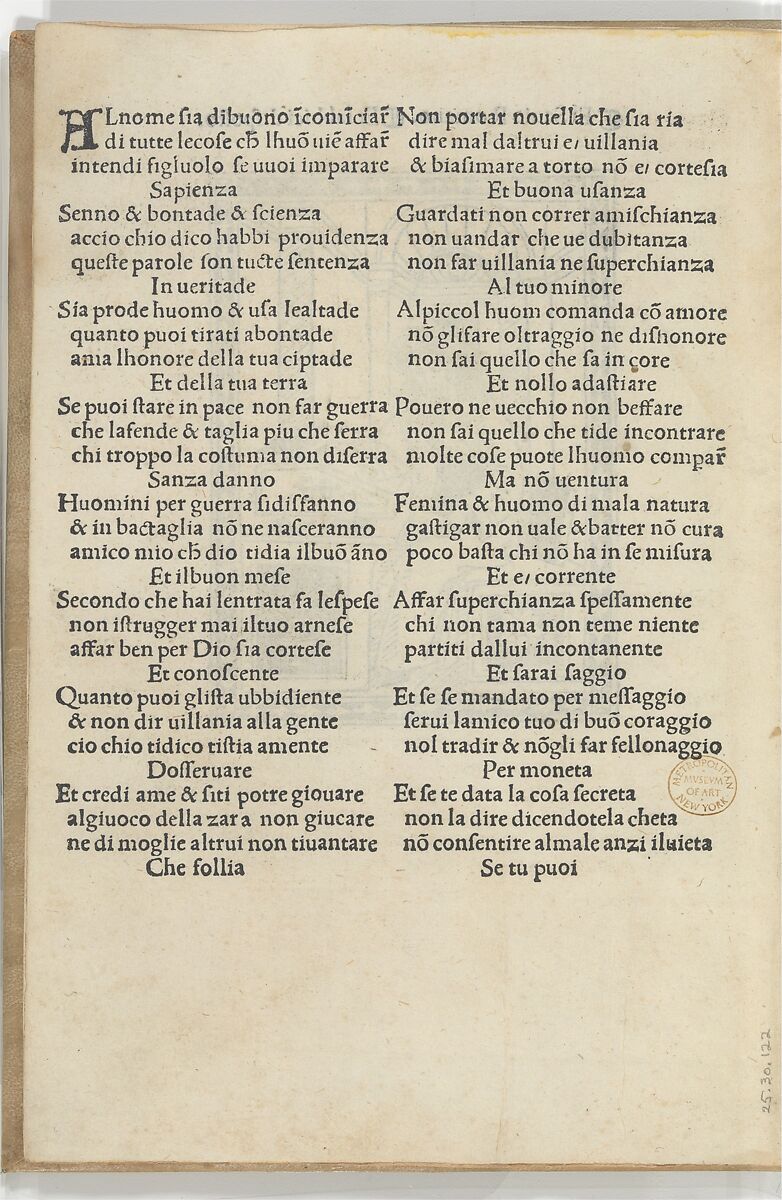 ALnome ſia dibuono īcomīciar̄
di tutte lecoſe ch̄ lhuō uiē affar̄
intendi figluolo ſe uuoi imparare
Sapienza
Senno & bontade & ſcienza
accio chio dico habbi prouidenza
queſte parole ſon tucte ſentenza
In ueritade
Sia prode huomo & uſa lealtade
quanto puoi tirati abontade
ama lhonore della tua ciptade
Et della tua terra
Se puoi ſtare in pace non far guerra
che lafende & taglia piu che ſerra
chi troppo la coſtuma non diſerra
Sanza danno
Huomini per guerra ſidiſfanno
& in bactaglia nō ne naſceranno
amico mio ch̄ dio tidia ilbuō āno
Et ilbuon meſe
Secondo che hai lentrata fa leſpeſe
non iſtrugger mai iltuo arneſe
affar ben per Dio ſia corteſe
Et conoſcente
Quanto puoi gliſta ubbidiente
& non dir uillania alla gente
cio chio tidico tiſtia amente
Doſſeruare
Et credi ame & ſiti potre giouare
algiuoco della zara non giucare
ne di moglie altrui non tiuantare
Che follia
Non portar nouella che ſia ria
dire mal daltrui e/ uillania
& biaſimare a torto nō e/ corteſia
Et buona uſanza
Guardati non correr amiſchianza
non uandar che ue dubitanza
non far uillania ne ſuperchianza
Al tuo minore
Alpiccol huom comanda cō amore
nō glifare oltraggio ne diſhonore
non ſai quello che ſa in core
Et nollo adaſtiare
Pouero ne uecchio non beffare
non ſai quello che tide incontrare
molte coſe puote lhuomo compar̄
Ma nō uentura
Femina & huomo di mala natura
gaſtigar non uale &batter nō cura
poco baſta chi nō ha in ſe miſura
Et e/ corrente
Affar ſuperchianza ſpeſſamente
chi non tama non teme niente
partiti dallui incontanente
Et ſarai ſaggio
Et ſe ſe mandato per meſſaggio
ſerui lamico tuo di buō coraggio
nol tradir & nōgli far fellonaggio
Per moneta
Et ſe te data la coſa ſecreta
non la dire dicendotela cheta
nō conſentire almale anzi iluieta
Se tu puoi
METROPOLITAN
MVSEVM
OF ART
NEW YORK
25.30.122